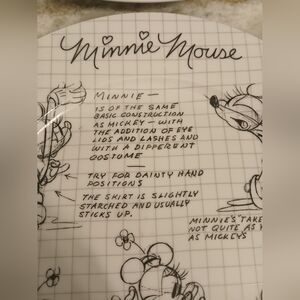 Minnie Mouse
MINNIE —
IS OF THE SAME
BASIC CONSTRUCTION
AS MICKEY — WITH
THE ADDITION OF EYE
LIDS AND LASHES AND
WITH A DIFFERENT
COSTUME —
TRY FOR DAINTY HAND
POSITIONS
THE SKIRT IS SLIGHTLY
STARCHED AND USUALLY
STICKS UP.
MINNIE'S TAKE
NOT QUITE AS
AS MICKEY'S